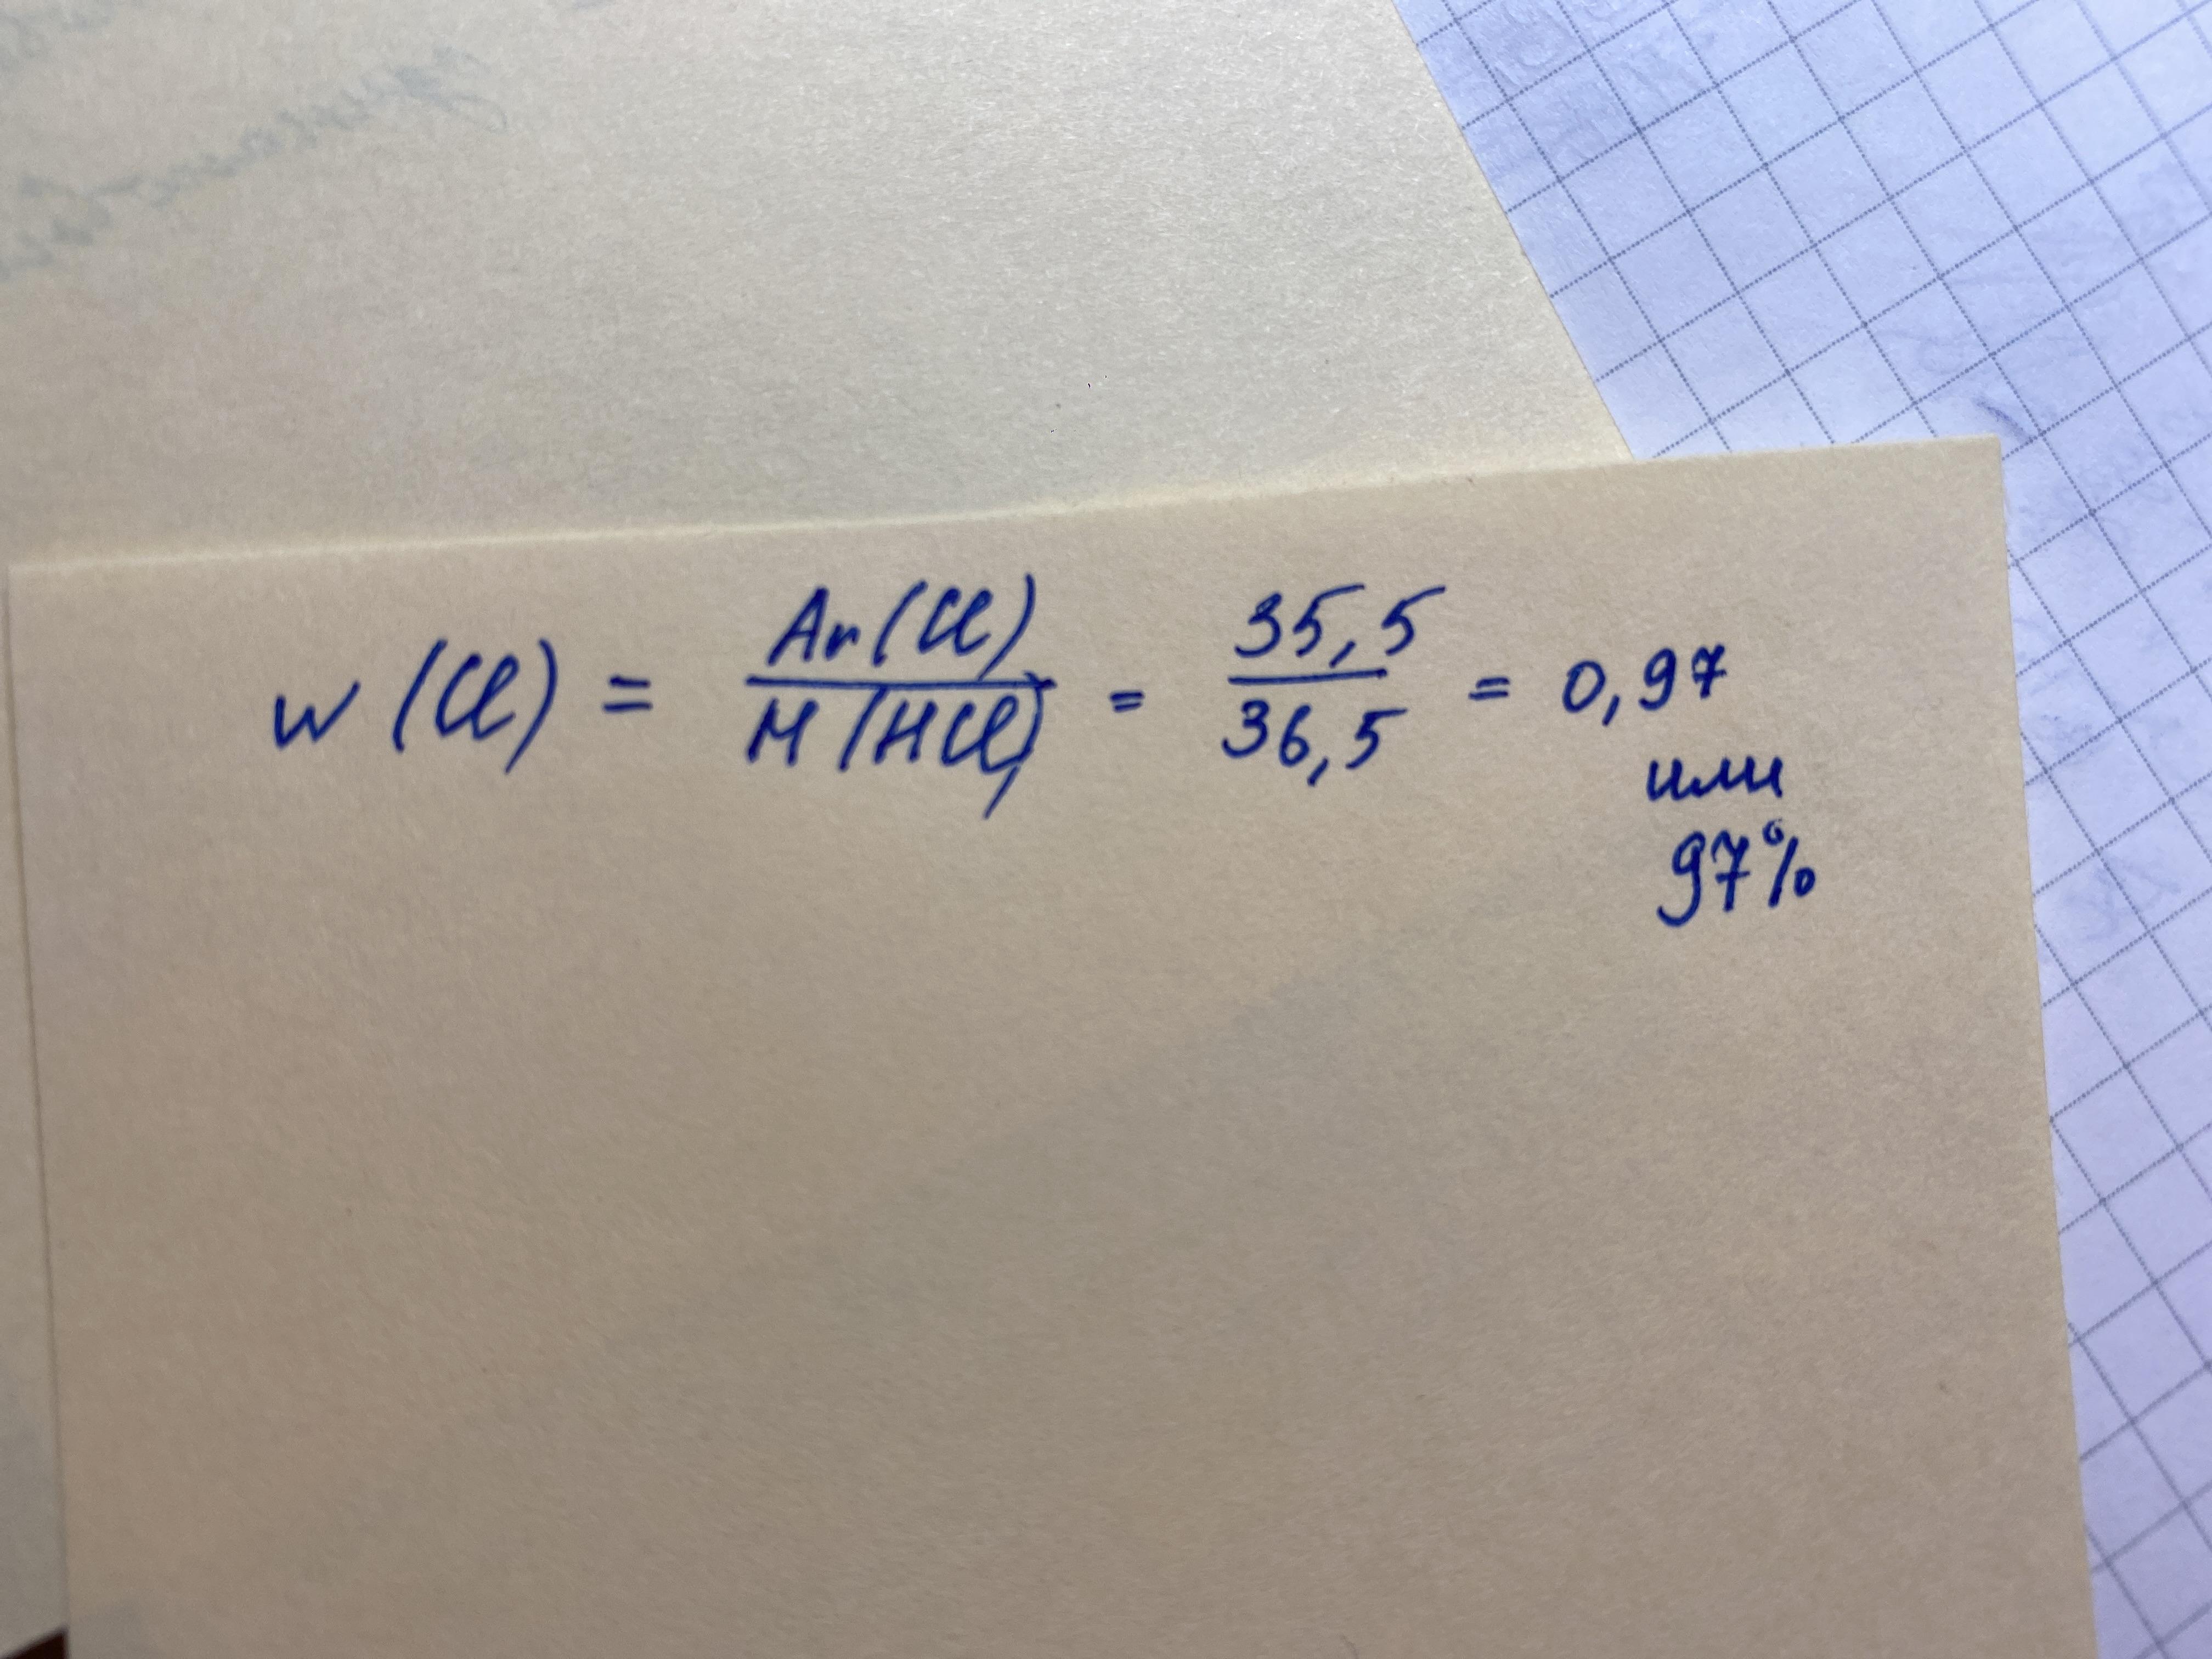 w (Cl) = Ar (Cl) / M (HCl) = 35,5 / 36,5 = 0,97
или
97%